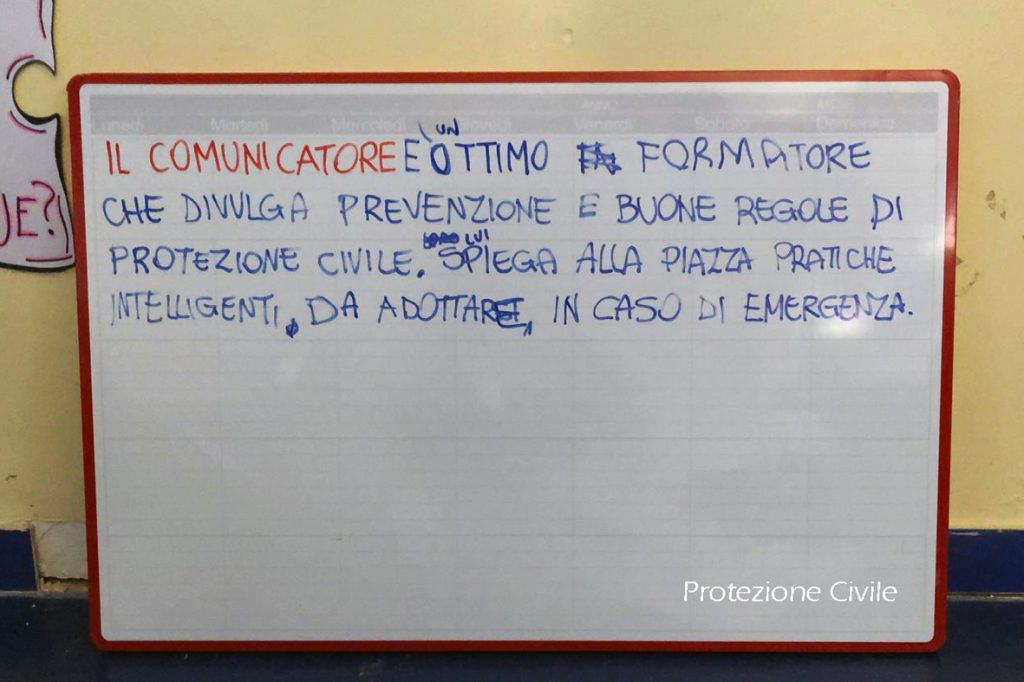 UE?
Lunedì Martedì Mercoledì Giovedì Venerdì Sabato Domenica
IL COMUNICATORE E UN OTTIMO FORMATORE
CHE DIVULGA PREVENZIONE E BUONE REGOLE DI
PROTEZIONE CIVILE. LUI SPIEGA ALLA PIAZZA PRATICHE
INTELLIGENTI, DA ADOTTARE, IN CASO DI EMERGENZA.
Protezione Civile